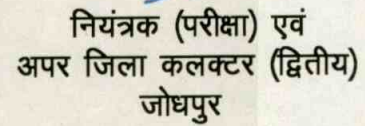 नियंत्रक (परीक्षा) एवं
अपर जिला कलक्टर (द्वितीय)
जोधपुर